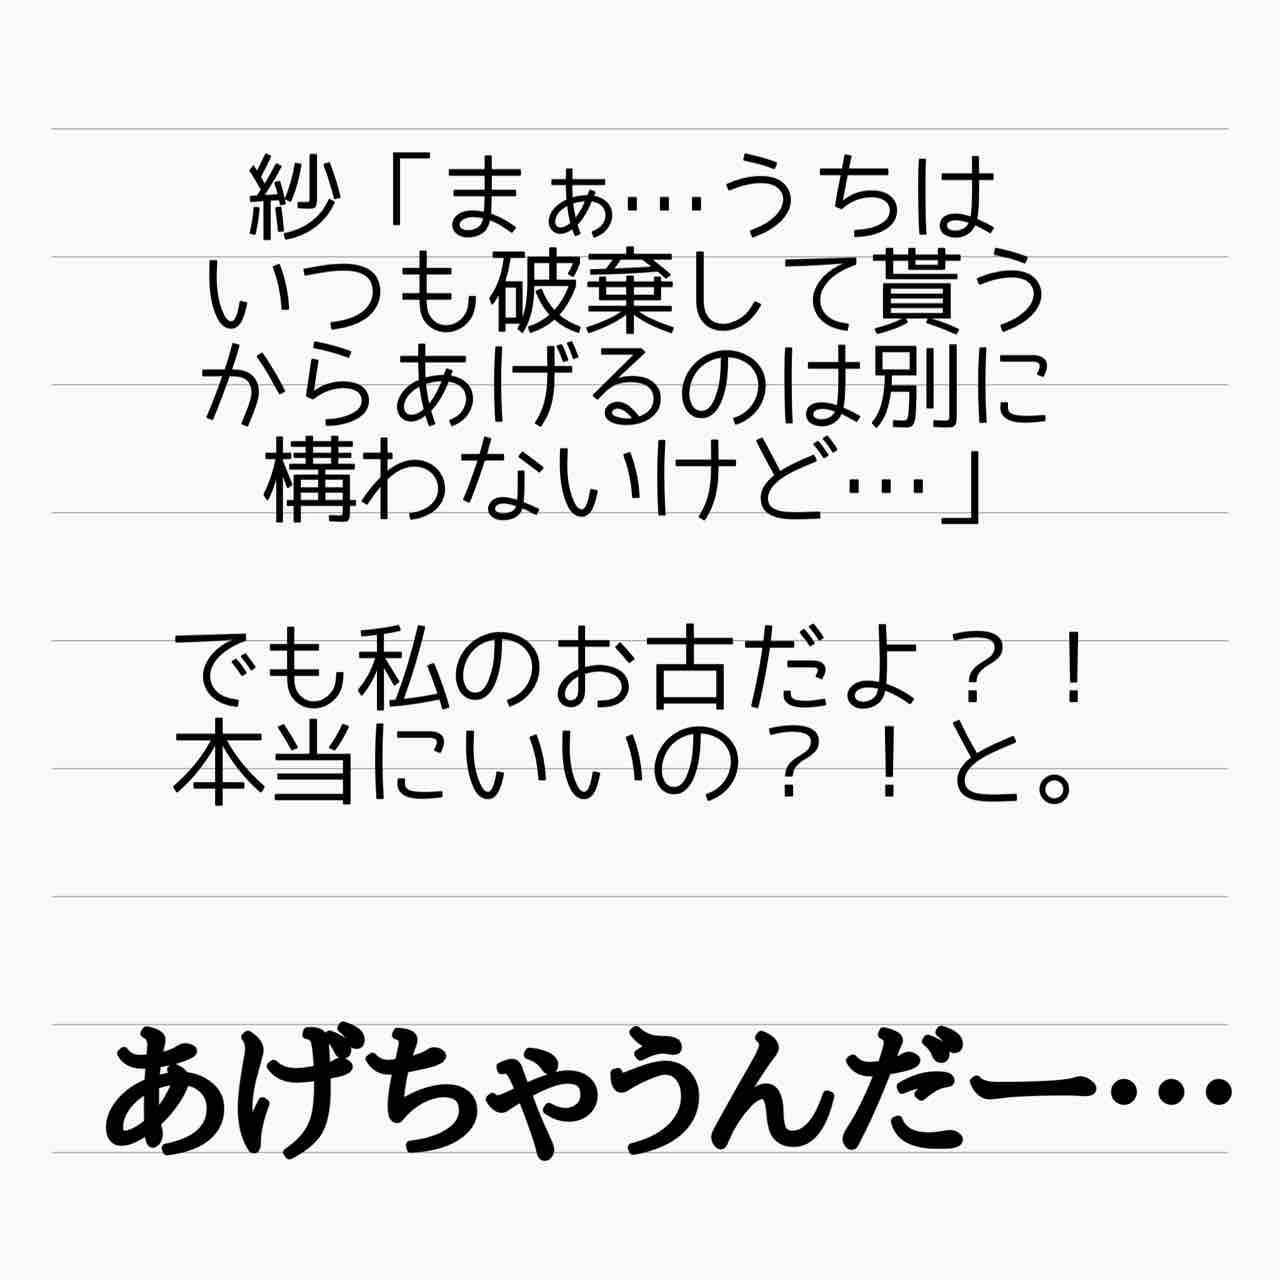 紗「まぁ…うちは
いつも破棄して貰う
からあげるのは別に
構わないけど…」
でも私のお古だよ？！
本当にいいの？！と。
あげちゃうんだー…